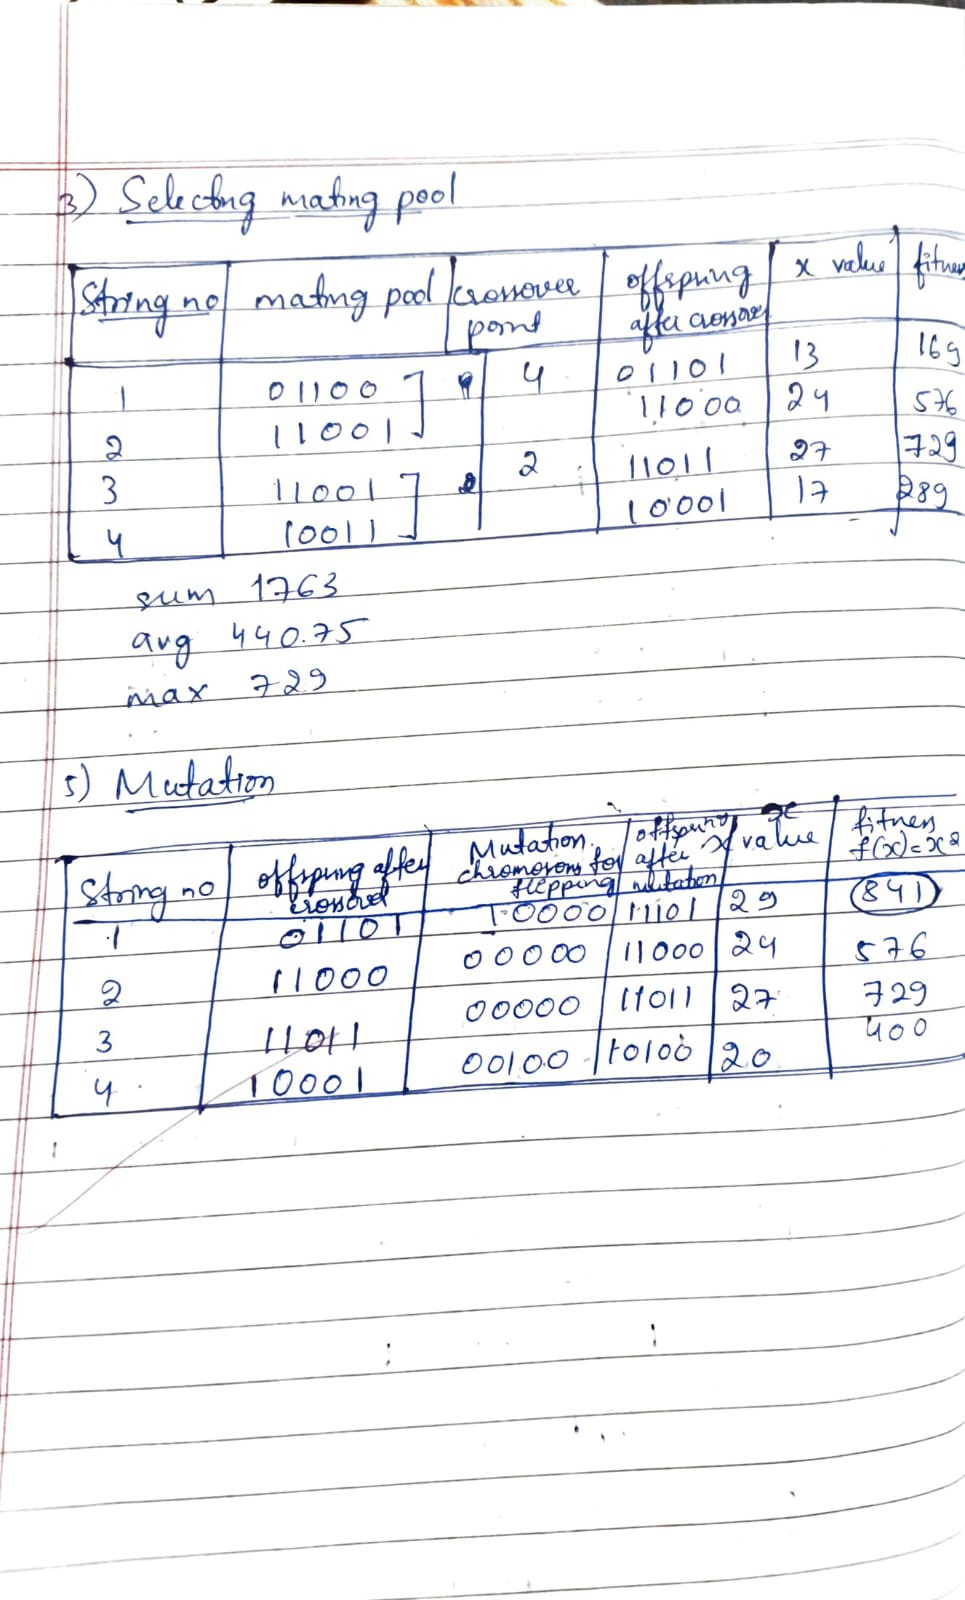 3) Selecting mating pool
String no | mating pool | crossover point | offspring after crossover | x value | fitness
1 | 01100 | 4 | 01101 | 13 | 169
2 | 11001 | | 11000 | 24 | 576
3 | 11001 | 2 | 11011 | 27 | 729
4 | 10011 | | 10001 | 17 | 289
sum 1763
avg 440.75
max 729
5) Mutation
String no | offspring after crossover | Mutation chromosoms for flepping | offspring after mutation | x value | fitness f(x)=x2
1 | 01101 | 10000 | 11101 | 29 | 841
2 | 11000 | 00000 | 11000 | 24 | 576
3 | 11011 | 00000 | 11011 | 27 | 729
4 | 10001 | 00100 | 10100 | 20 | 400